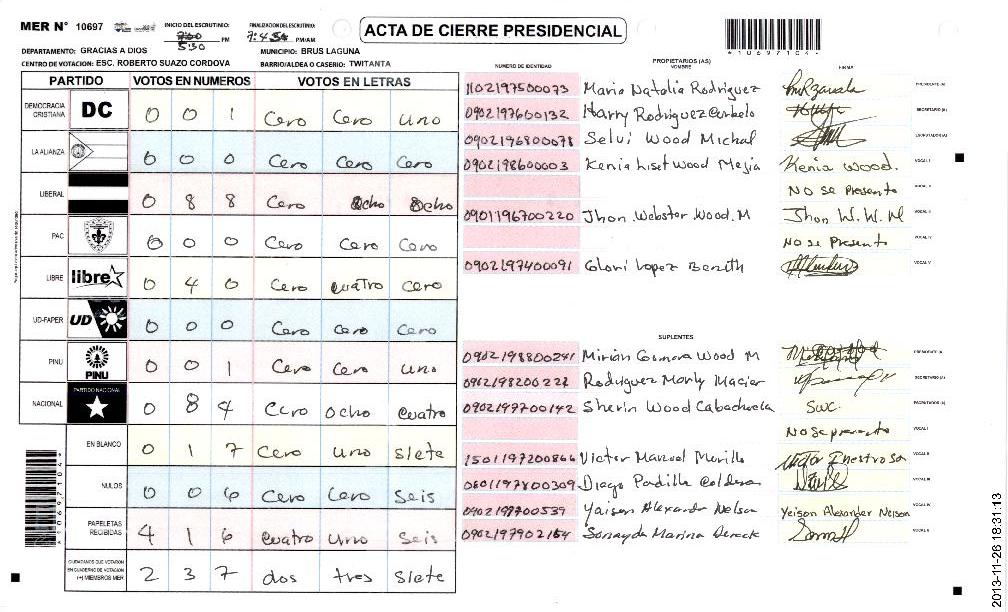 MER N° 10697
INICIO DEL ESCRUTINIO: 5:30 PM
FINALIZACION DEL ESCRUTINIO: PM/AM
ACTA DE CIERRE PRESIDENCIAL
*10697104*
DEPARTAMENTO: GRACIAS A DIOS
MUNICIPIO: BRUS LAGUNA
CENTRO DE VOTACION: ESC. ROBERTO SUAZO CORDOVA
BARRIO/ALDEA O CASERIO: TWITANTA
PARTIDO VOTOS EN NUMEROS VOTOS EN LETRAS
DEMOCRACIA CRISTIANA DC 0 0 1 Cero Cero uno
LA ALIANZA 0 0 0 Cero Cero Cero
LIBERAL 0 8 8 Cero Ocho Ocho
PAC 0 0 0 Cero Cero Cero
LIBRE libre 0 4 0 Cero cuatro cero
UD-FAPER UD 0 0 0 Cero Cero Cero
PINU PINU 0 0 1 Cero Cero uno
NACIONAL PARTIDO NACIONAL 0 8 4 Cero ocho cuatro
EN BLANCO 0 1 7 Cero uno siete
NULOS 0 0 6 Cero Cero Seis
PAPELETAS RECIBIDAS 4 1 6 cuatro uno Seis
CIUDADANOS QUE VOTARON EN CUADERNO DE VOTACION (+) MIEMBROS MER 2 3 7 dos tres siete
PROPIETARIOS (AS)
NUMERO DE IDENTIDAD NOMBRE FIRMA
1102197500073 Maria Natalia Rodriguez PRESIDENTE (A)
0902197600132 Harry Rodriguez SECRETARIO (A)
0902196800078 Selvi Wood Michal ESCRUTADOR (A)
0902198600003 Kenia Liset Wood Mejia Kenia Wood. VOCAL I
No se Presento
0901196700220 Jhon Webster Wood. M Jhon W. W. M
No se Presento VOCAL IV
0902197400091 Glori Lopez VOCAL V
SUPLENTES
0902198800241 Mirian Wood M PRESIDENTE (A)
0902198200227 Rodriguez SECRETARIO (A)
0902199700142 Sherin Wood SWC.
No se presento VOCAL I
1501197200866 Victor Manuel Murillo Victor Inestrosa
0601197800309 Diego Padilla
0902198700539 Yaison Alexander Nelson Yeison Alexander Nelson
0902197902154 Sonayda Marina
*10697104*
2013-11-26 18:31:13